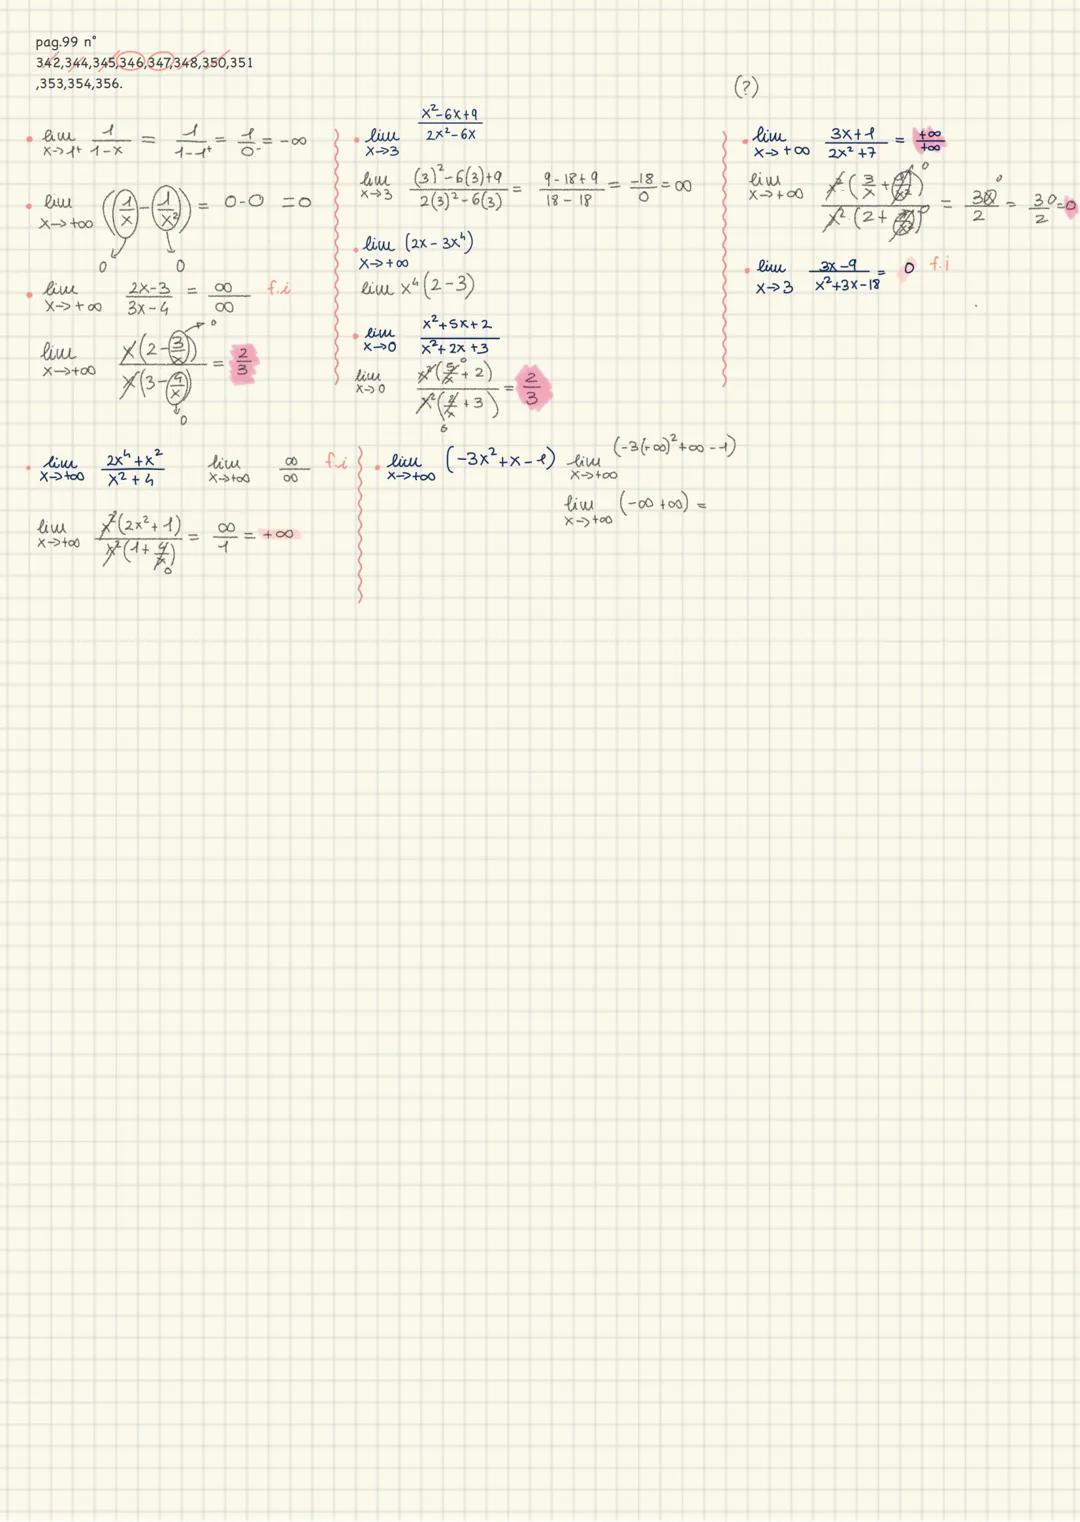 pag.99 n°
342,344,345,346,347,348,350,351
,353,354,356.
(?)
• lim x→1⁺ 1/(1-x) = 1/(1-1⁺) = 1/0⁻ = -∞
• lim x→+∞ (1/x - 1/x²) = 0-0 =0
0 0
• lim x→+∞ (2x-3)/(3x-4) = ∞/∞ f.i
lim x→+∞ x(2-3/x)/x(3-4/x) = 2/3
0
0
• lim x→3 (x²-6x+9)/(2x²-6x)
lim x→3 ((3)²-6(3)+9)/(2(3)²-6(3)) = (9-18+9)/(18-18) = -18/0 = ∞
• lim x→+∞ (2x-3x⁴)
lim x⁴(2-3)
• lim x→0 (x²+5x+2)/(x²+2x+3)
lim x→0 x²(5/x+2)/x²(2/x+3) = 2/3
0
0
• lim x→+∞ (3x+1)/(2x²+7) = +∞/+∞
lim x→+∞ x²(3/x+1/x²)/x²(2+7/x²) = 30/2 = 3·0/2=0
0
0
• lim x→3 (3x-9)/(x²+3x-18) = 0 f.i
• lim x→+∞ (2x⁴+x²)/(x²+4) lim x→+∞ ∞/∞ f.i
lim x→+∞ x²(2x²+1)/x²(1+4/x) = ∞/1 = +∞
0
• lim x→+∞ (-3x²+x-1) lim x→+∞ (-3(+∞)²+∞-1)
lim x→+∞ (-∞+∞) =